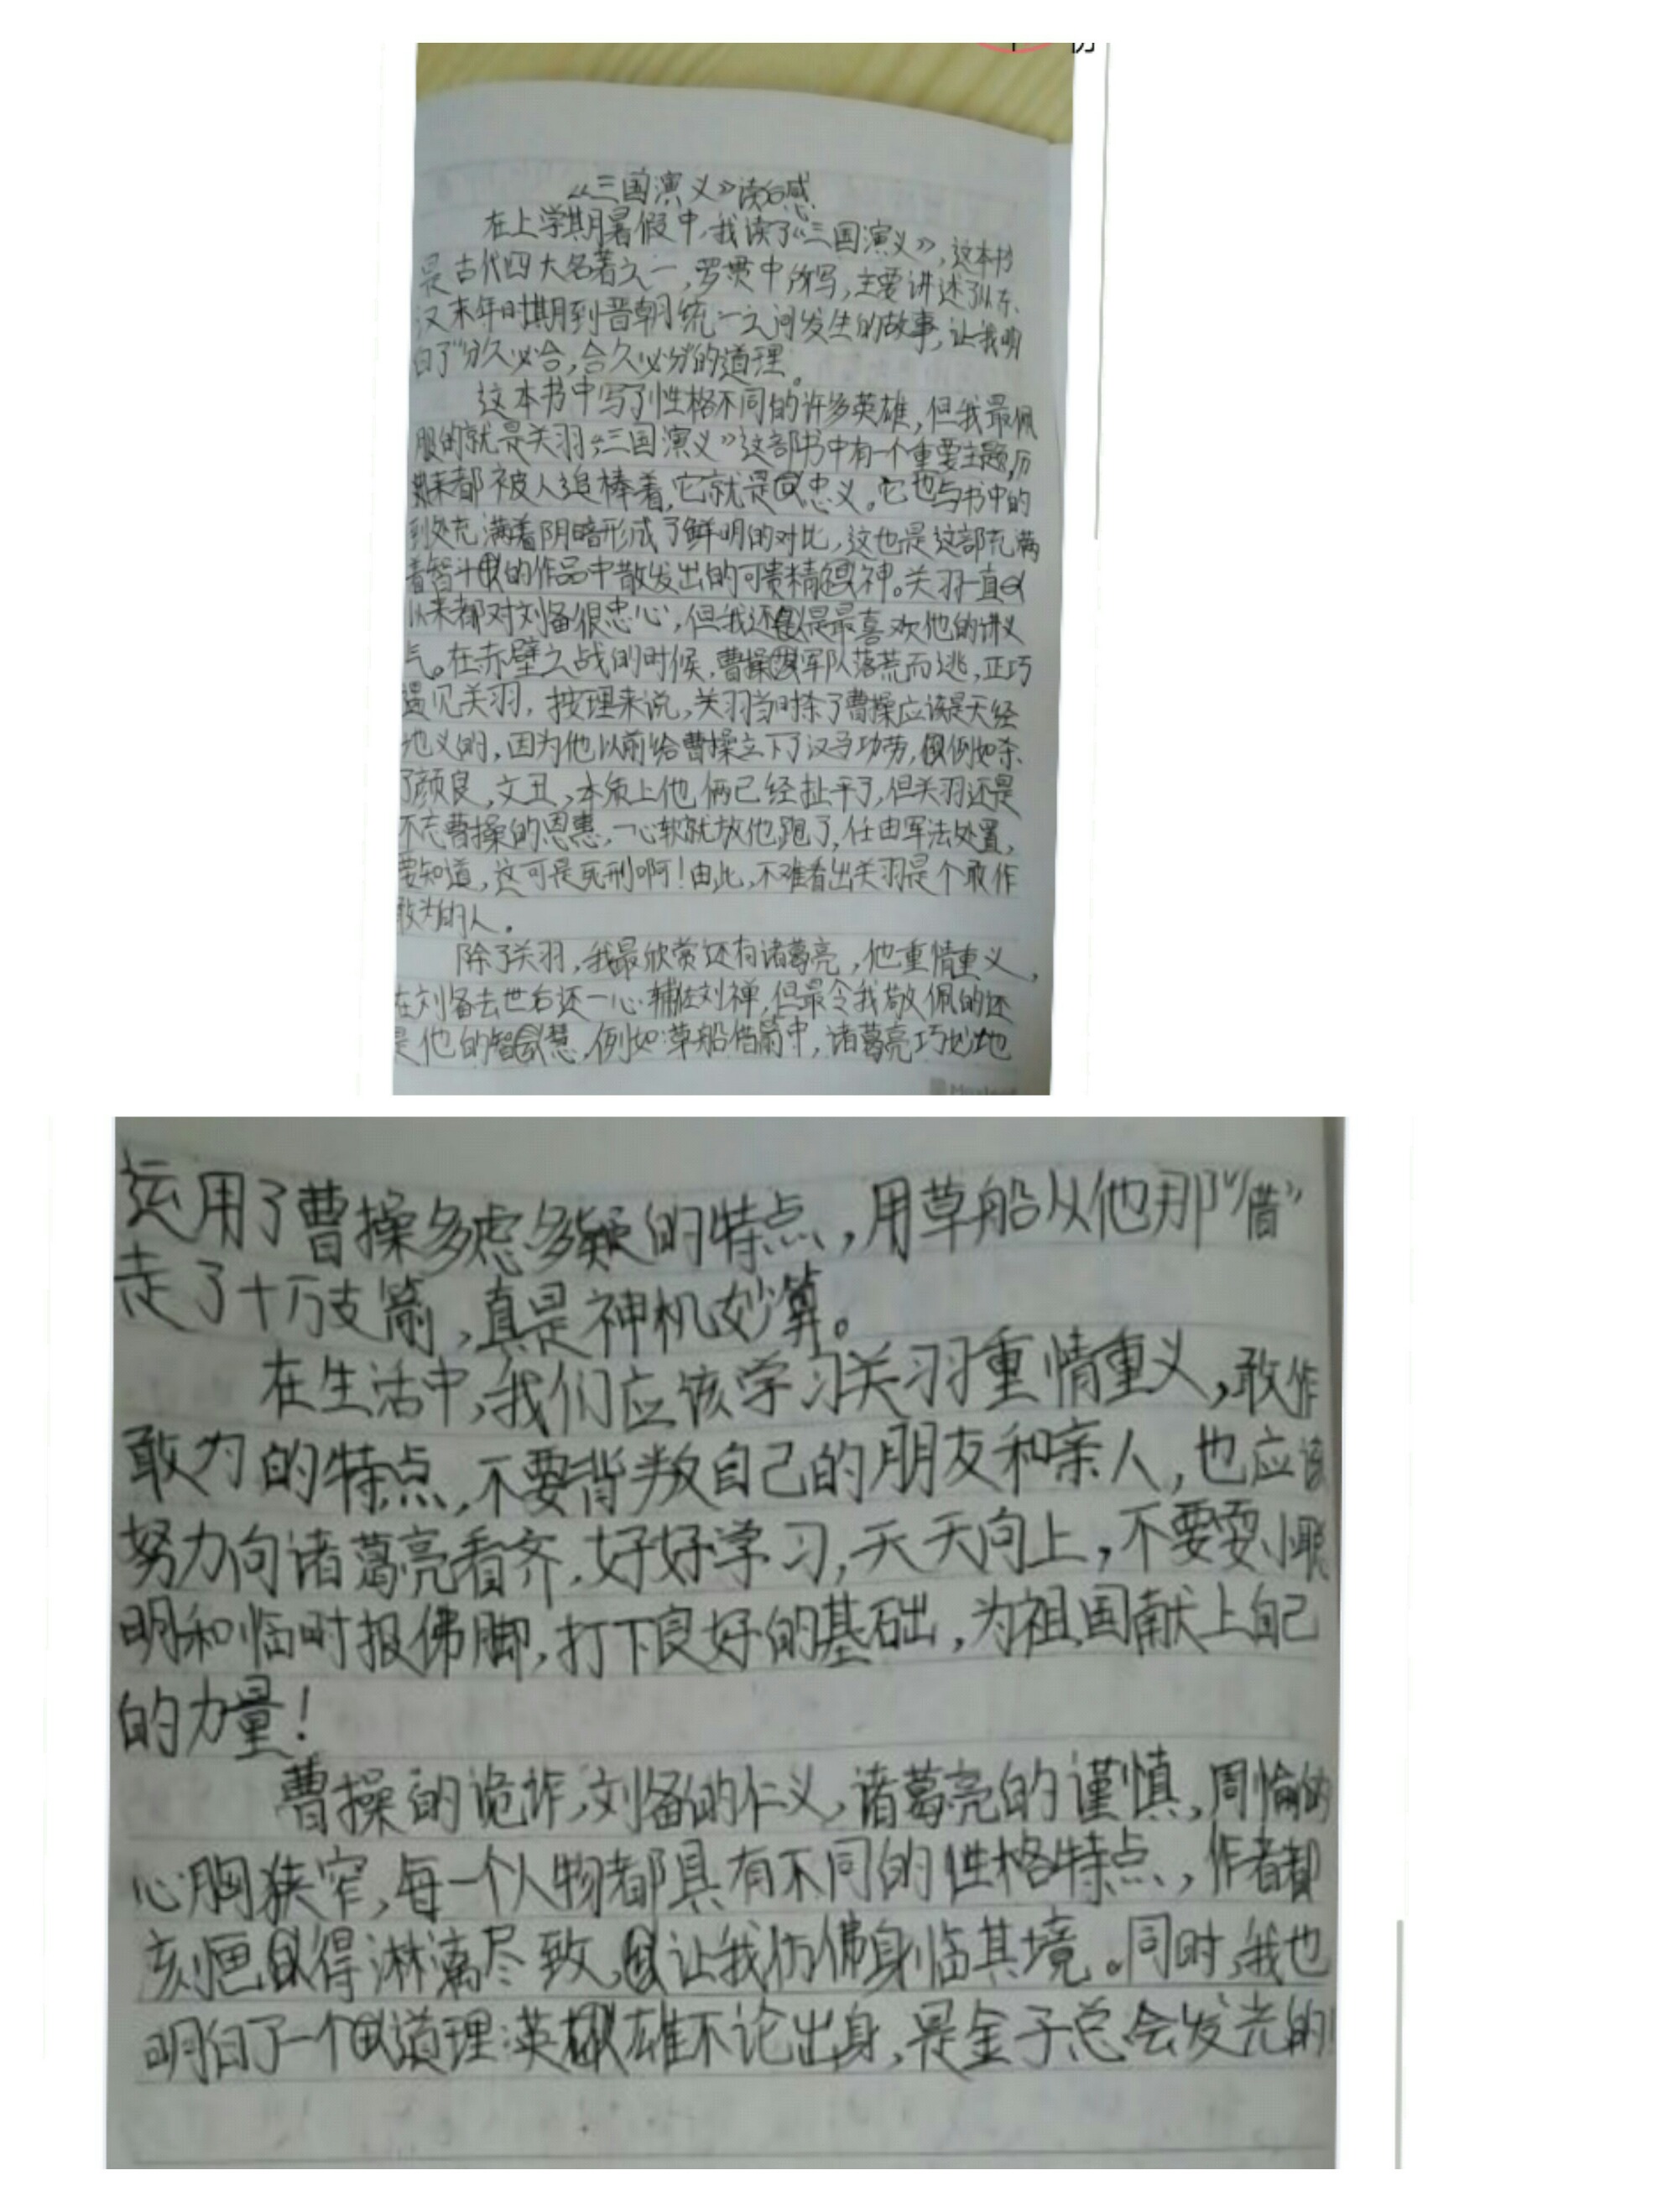 《三国演义》读后感
在上学期暑假中,我读了《三国演义》,这本书
是古代四大名著之一,罗贯中所写,主要讲述了从东
汉末年时期到晋朝统一之间发生的故事,让我明
白了"分久必合,合久必分"的道理。
这本书中写了性格不同的许多英雄,但我最佩
服的就是关羽,《三国演义》这部书中有一个重要主题,历
来都被人追棒着,它就是忠义。它也与书中的
到处充满着阴暗形成了鲜明的对比,这也是这部充满
着智斗的作品中散发出的可贵精神。关羽一直
以来都对刘备很忠心,但我还是最喜欢他的讲义
气。在赤壁之战的时候,曹操军队落荒而逃,正巧
遇见关羽,按理来说,关羽当时杀了曹操应该是天经
地义的,因为他以前给曹操立下了汉马功劳,例如杀
了颜良,文丑,本质上他俩已经扯平了,但关羽还是
不忘曹操的恩惠,一心软就放他跑了,任由军法处置,
要知道,这可是死刑啊!由此,不难看出关羽是个敢作
敢为的人。
除了关羽,我最欣赏还有诸葛亮,他重情重义,
在刘备去世后还一心辅佐刘禅,但最令我敬佩的还
是他的智慧,例如:草船借箭中,诸葛亮巧妙地
运用了曹操多虑多疑的特点,用草船从他那"借"
走了十万支箭,真是神机妙算。
在生活中,我们应该学习关羽重情重义,敢作
敢为的特点,不要背叛自己的朋友和亲人,也应该
努力向诸葛亮看齐,好好学习,天天向上,不要耍小聪
明和临时报佛脚,打下良好的基础,为祖国献上自己
的力量!
曹操的诡诈,刘备的仁义,诸葛亮的谨慎,周愉的
心胸狭窄,每一个人物都具有不同的性格特点,作者都
刻画得淋漓尽致,让我仿佛身临其境。同时,我也
明白了一个道理:英雄不论出身,是金子总会发光的!